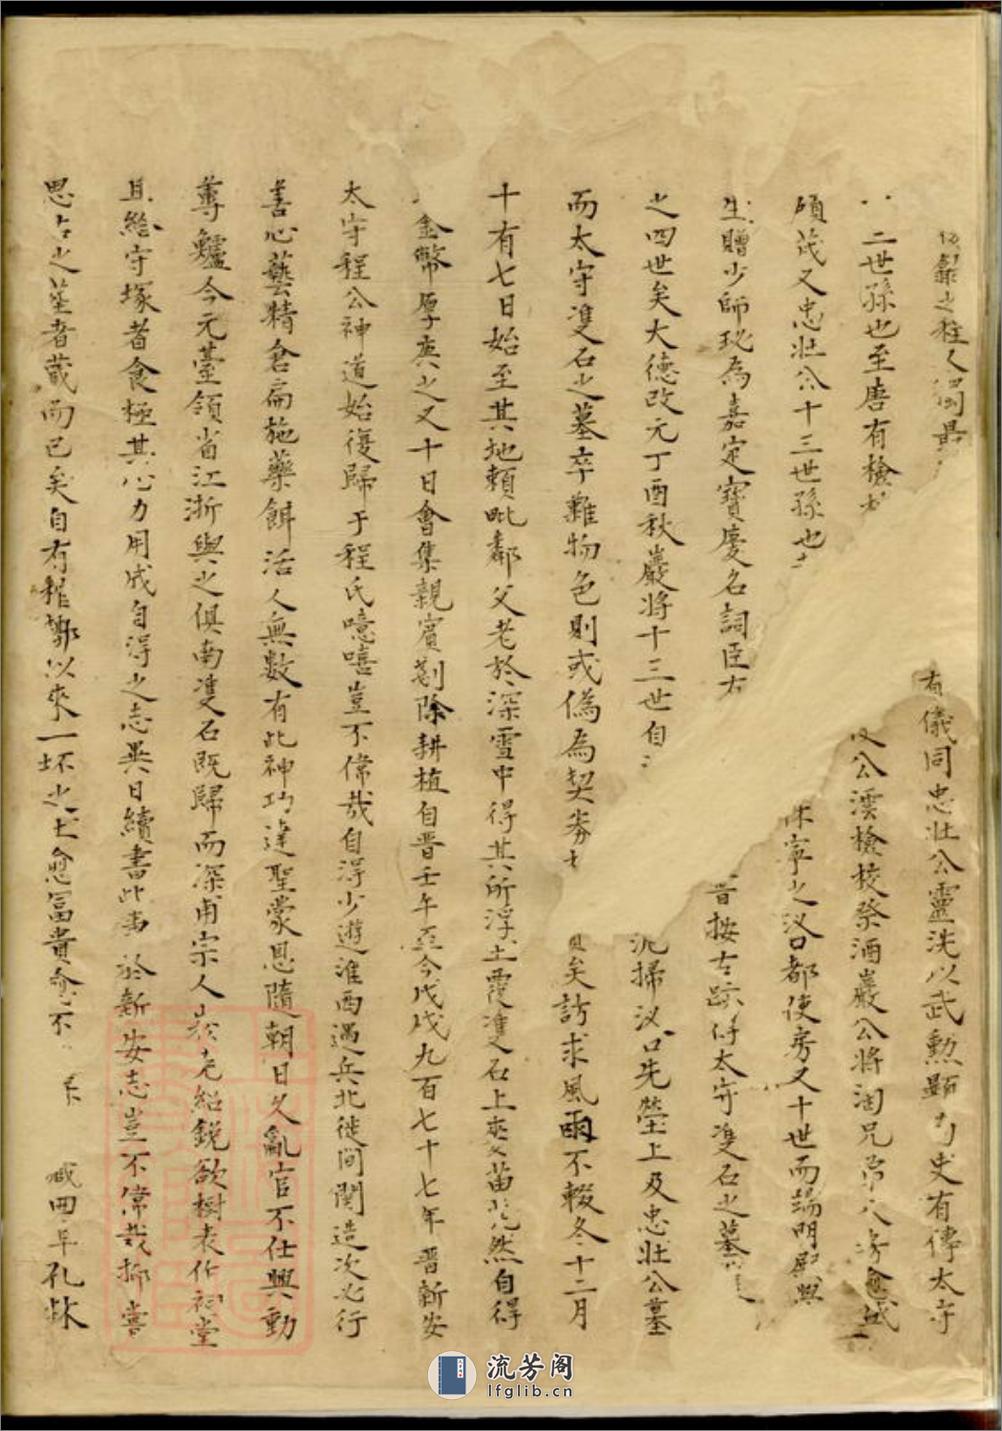 錄之往人獨最 有儀同忠壯公靈洗以武勲顯 史有傳太守
二世孫也至唐有檢 公澐檢校祭酒巖公將淘兄 愈盛
碩茂又忠壯公十三世孫也 休寧之汊口都使房又十世而端明殿興
生贈少師玭為嘉定寶慶名詞臣 晋按古跡 太守𩀱石之墓
之四世矣大德改元丁酉秋巖將十三世自 洒掃汊口先塋上及忠壯公墓
而太守𩀱石之墓卒難物色則或偽為契券 矣訪求風雨不輟冬十二月
十有七日始至其地頼毗鄰父老於深雪中得其所浮土覆𩀱石上 苗茫然自得
金幣厚 之又十日會集親賓剗除耕植自晋壬午至今戊戌九百七十七年晋新安
太守程公神道始復歸于程氏噫嘻豈不偉哉自得少遊淮西遇兵北徙间関造次必行
善心藝精倉扁施藥餌活人無數有此神巧達聖蒙恩隨朝日久亂官不仕興動
蓴鱸今元臺領省江浙與之俱南𩀱石既歸而深甫宗人 克紹鋭欲樹表作祠堂
且給守塚者食極其心力用成自得之志異日續書此事於新安志豈不偉哉抑嘗
思古之塟者蔵而已矣自有 以來一抔之土愈冨貴愈不 年孔林
流芳阁
lfglib.cn